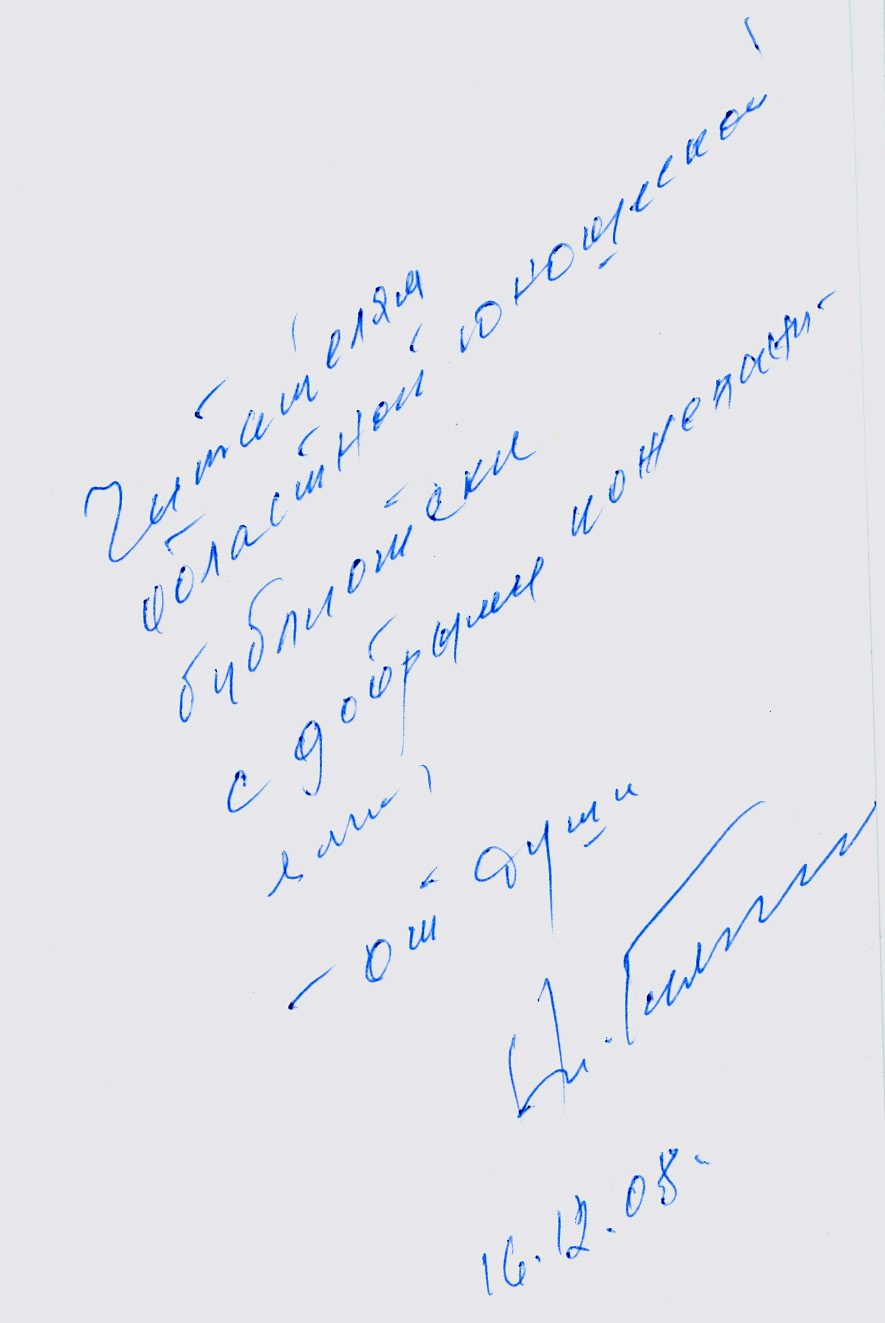 Читателям
областной юношеской
библиотеки
с добрыми пожелани-
ями,
- от души
16.12.08.